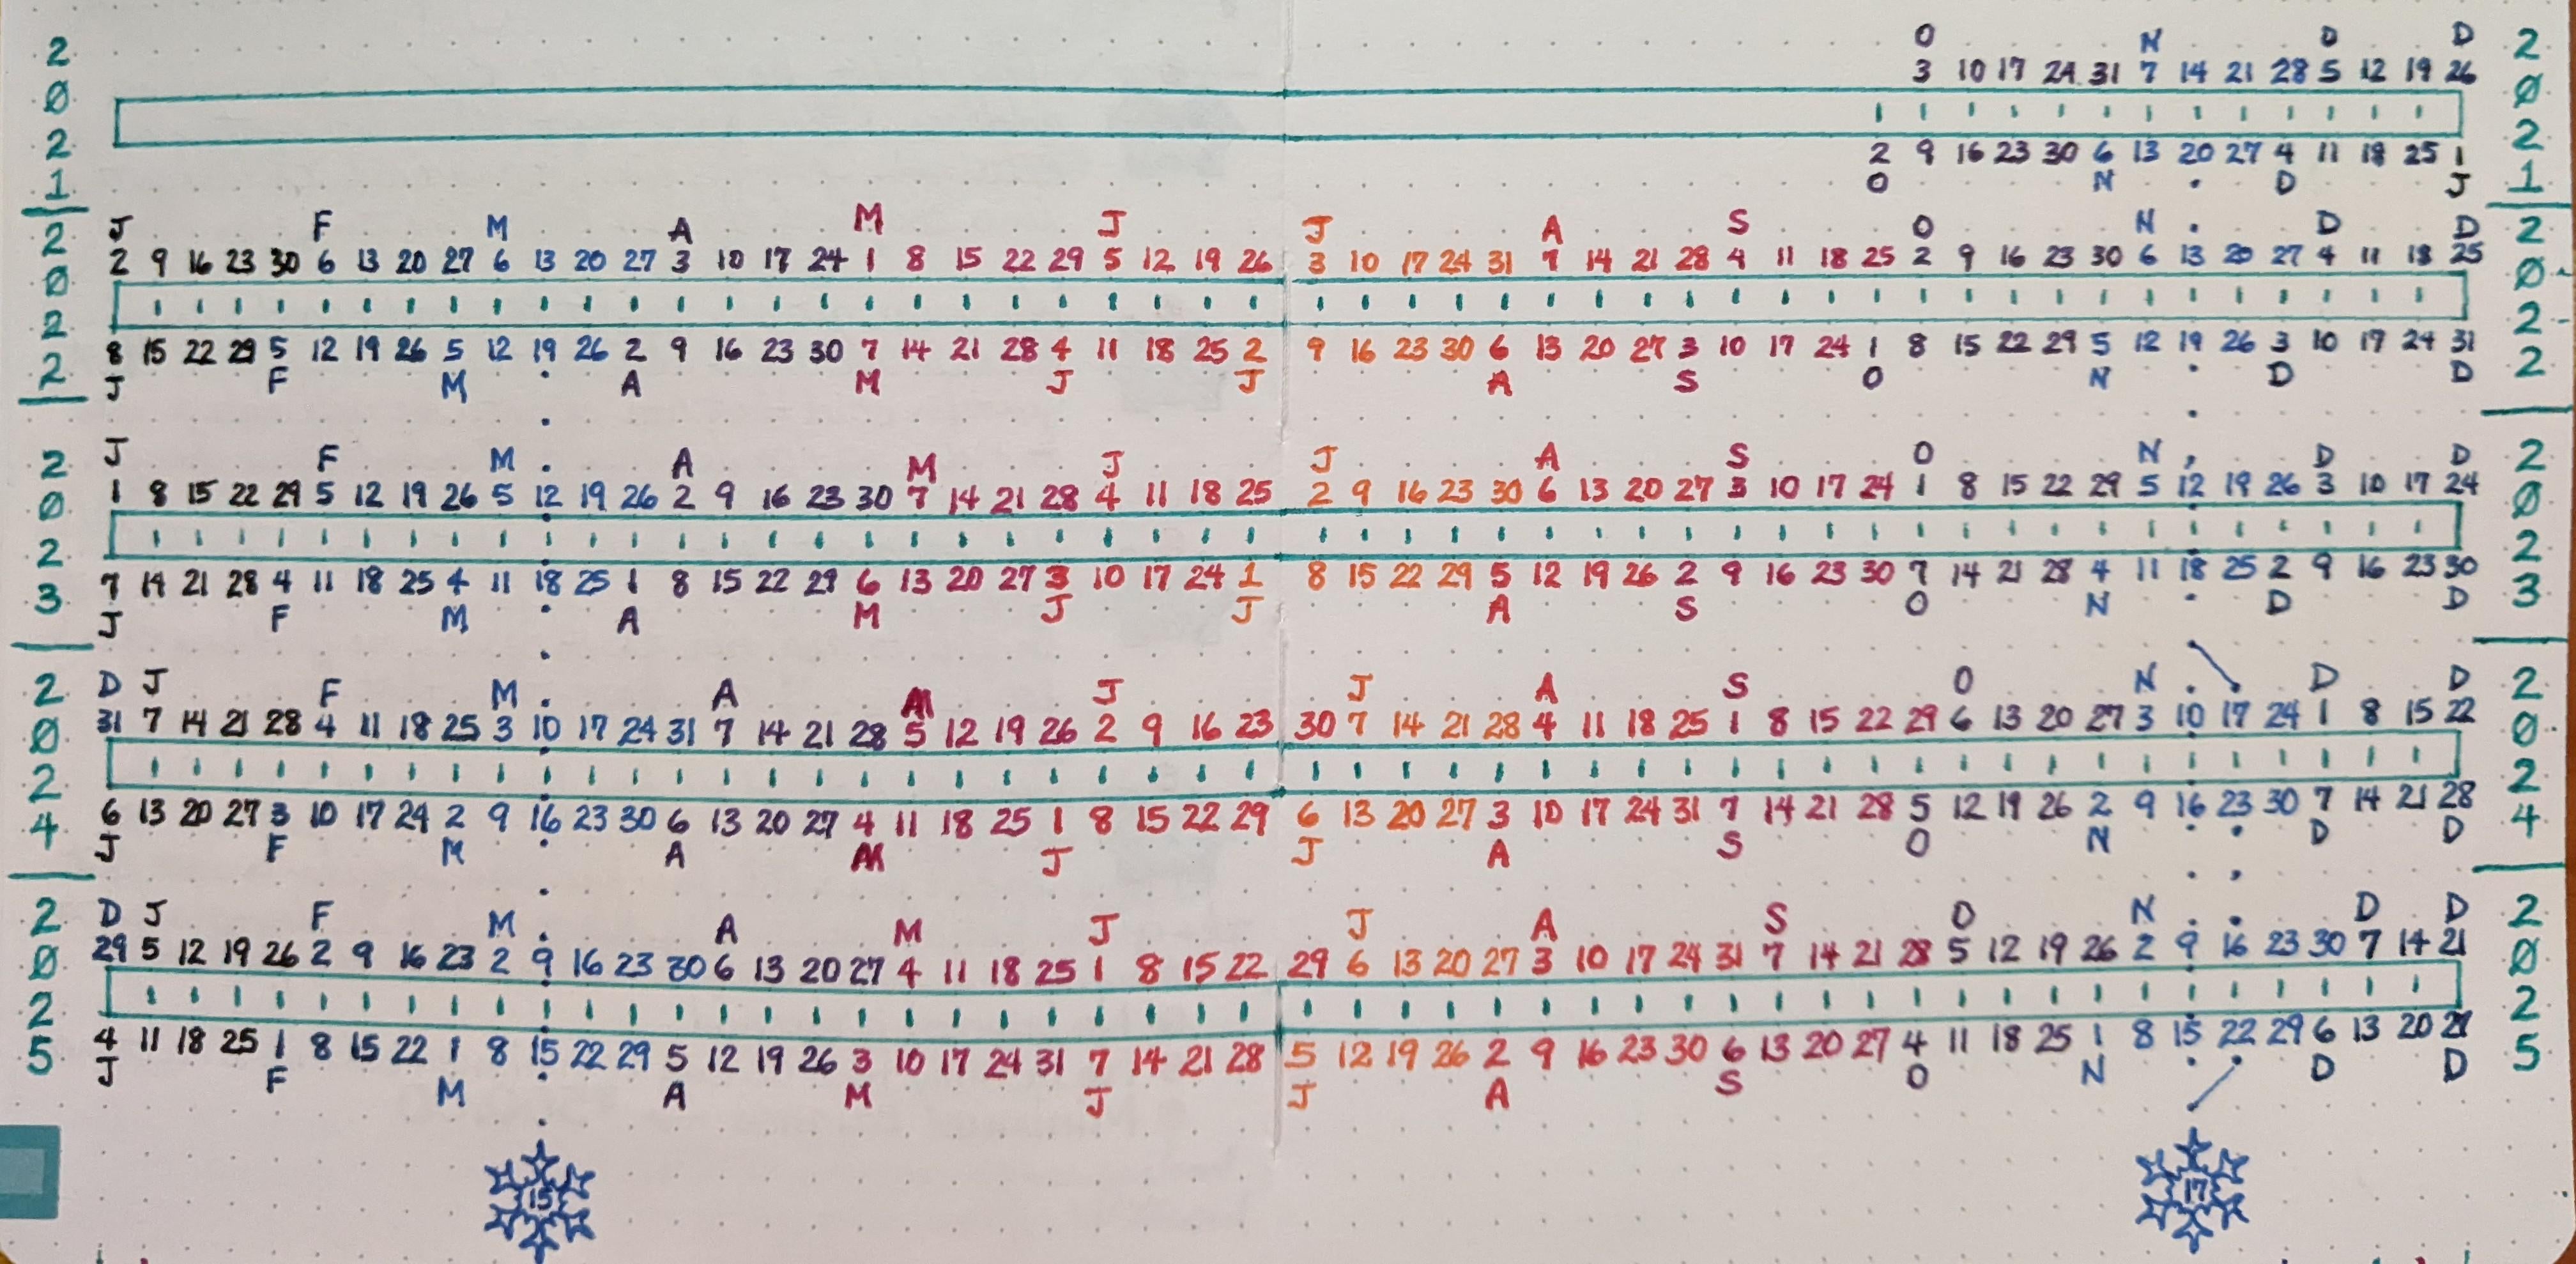 2 0 2 1
O N D D
3 10 17 24 31 7 14 21 28 5 12 19 26
2 9 16 23 30 6 13 20 27 4 11 18 25 1
O N D J
2 0 2 1
2 0 2 2
J F M A M J J A S O N D D
2 9 16 23 30 6 13 20 27 6 13 20 27 3 10 17 24 1 8 15 22 29 5 12 19 26 3 10 17 24 31 7 14 21 28 4 11 18 25 2 9 16 23 30 6 13 20 27 4 11 18 25
8 15 22 29 5 12 19 26 5 12 19 26 2 9 16 23 30 7 14 21 28 4 11 18 25 2 9 16 23 30 6 13 20 27 3 10 17 24 1 8 15 22 29 5 12 19 26 3 10 17 24 31
J F M A M J J A S O N D D
2 0 2 2
2 0 2 3
J F M A M J J A S O N D D
1 8 15 22 29 5 12 19 26 5 12 19 26 2 9 16 23 30 7 14 21 28 4 11 18 25 2 9 16 23 30 6 13 20 27 3 10 17 24 1 8 15 22 29 5 12 19 26 3 10 17 24
7 14 21 28 4 11 18 25 4 11 18 25 1 8 15 22 29 6 13 20 27 3 10 17 24 1 8 15 22 29 5 12 19 26 2 9 16 23 30 7 14 21 28 4 11 18 25 2 9 16 23 30
J F M A M J J A S O N D D
2 0 2 3
2 0 2 4
D J F M A M J J A S O N D D
31 7 14 21 28 4 11 18 25 3 10 17 24 31 7 14 21 28 5 12 19 26 2 9 16 23 30 7 14 21 28 4 11 18 25 1 8 15 22 29 6 13 20 27 3 10 17 24 1 8 15 22
6 13 20 27 3 10 17 24 2 9 16 23 30 6 13 20 27 4 11 18 25 1 8 15 22 29 6 13 20 27 3 10 17 24 31 7 14 21 28 5 12 19 26 2 9 16 23 30 7 14 21 28
J F M A M J J A S O N D D
2 0 2 4
2 0 2 5
D J F M A M J J A S O N D D
29 5 12 19 26 2 9 16 23 2 9 16 23 30 6 13 20 27 4 11 18 25 1 8 15 22 29 6 13 20 27 3 10 17 24 31 7 14 21 28 5 12 19 26 2 9 16 23 30 7 14 21
4 11 18 25 1 8 15 22 1 8 15 22 29 5 12 19 26 3 10 17 24 31 7 14 21 28 5 12 19 26 2 9 16 23 30 6 13 20 27 4 11 18 25 1 8 15 22 29 6 13 20 27
J F M A M J J A S O N D D
2 0 2 5
15
17